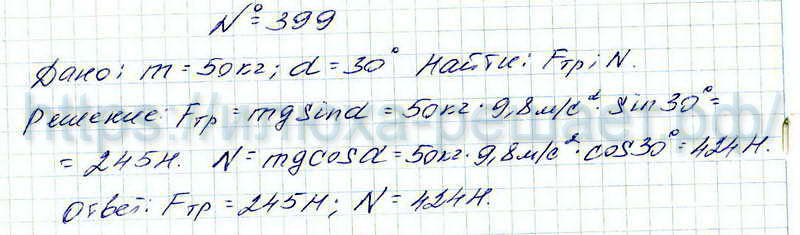 № = 399
Дано: m = 50кг; α = 30° Найти: Fтр; N.
Решение: Fтр = mgsinα = 50кг · 9,8м/с² · sin30° =
= 245Н. N = mgcosα = 50кг · 9,8м/с² · cos30° = 424Н.
Ответ: Fтр = 245Н; N = 424Н.